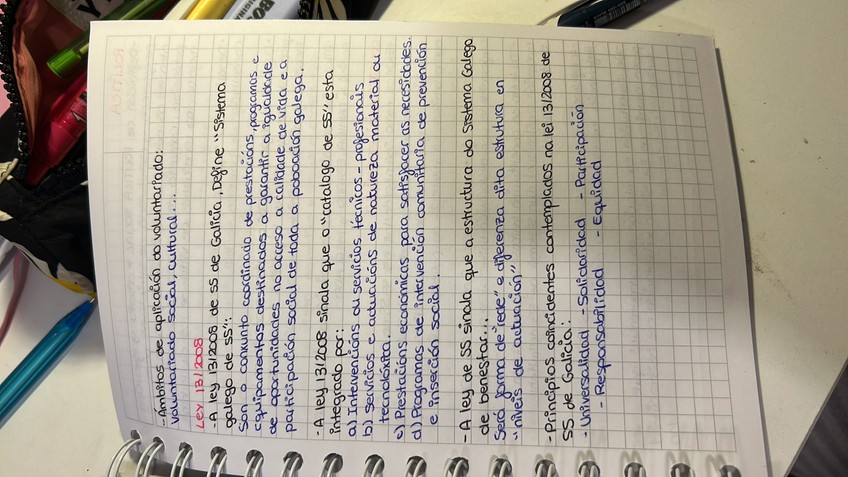 - Ámbitos de aplicación do voluntariado:
Voluntariado social, cultural...
Ley 13/2008
- A ley 13/2008 de SS de Galicia, Define "Sistema
galego de SS":
Son o conxunto coordinado de prestacións, programas e
equipamentos destinados a garantir a igualdade
de oportunidades no acceso a calidade de vida e a
participación social de toda a poboación galega.
- A ley 13/2008 sinala que o "catalogo de SS" esta
integrado por:
a) Intervencións ou servicios técnicos - profesionais
b) Servicios e actuacións de natureza material ou
tecnolóxica.
c) Prestacións económicas para satisfacer as necesidades.
d) Programas de intervención comunitaria de prevención
e inserción social.
- A ley de SS sinala que a estructura do Sistema Galego
de benestar...
Será forma de "rede" e diferenza dita estrutura en
"niveis de actuación"
- Principios coincidentes contemplados na lei 13/2008 de
SS de Galicia:
- Universalidad - Solidaridad - Participación
- Responsabilidad - Equidad